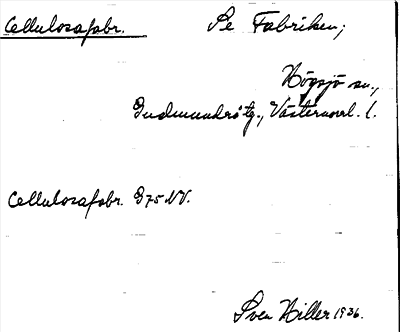 Cellulosafabr. Se Fabriken;
Högsjö sn.,
Gudmundrå tg., Västernorrl. l.
Cellulosafabr. G75 NV.
Sven Hiller 1936.